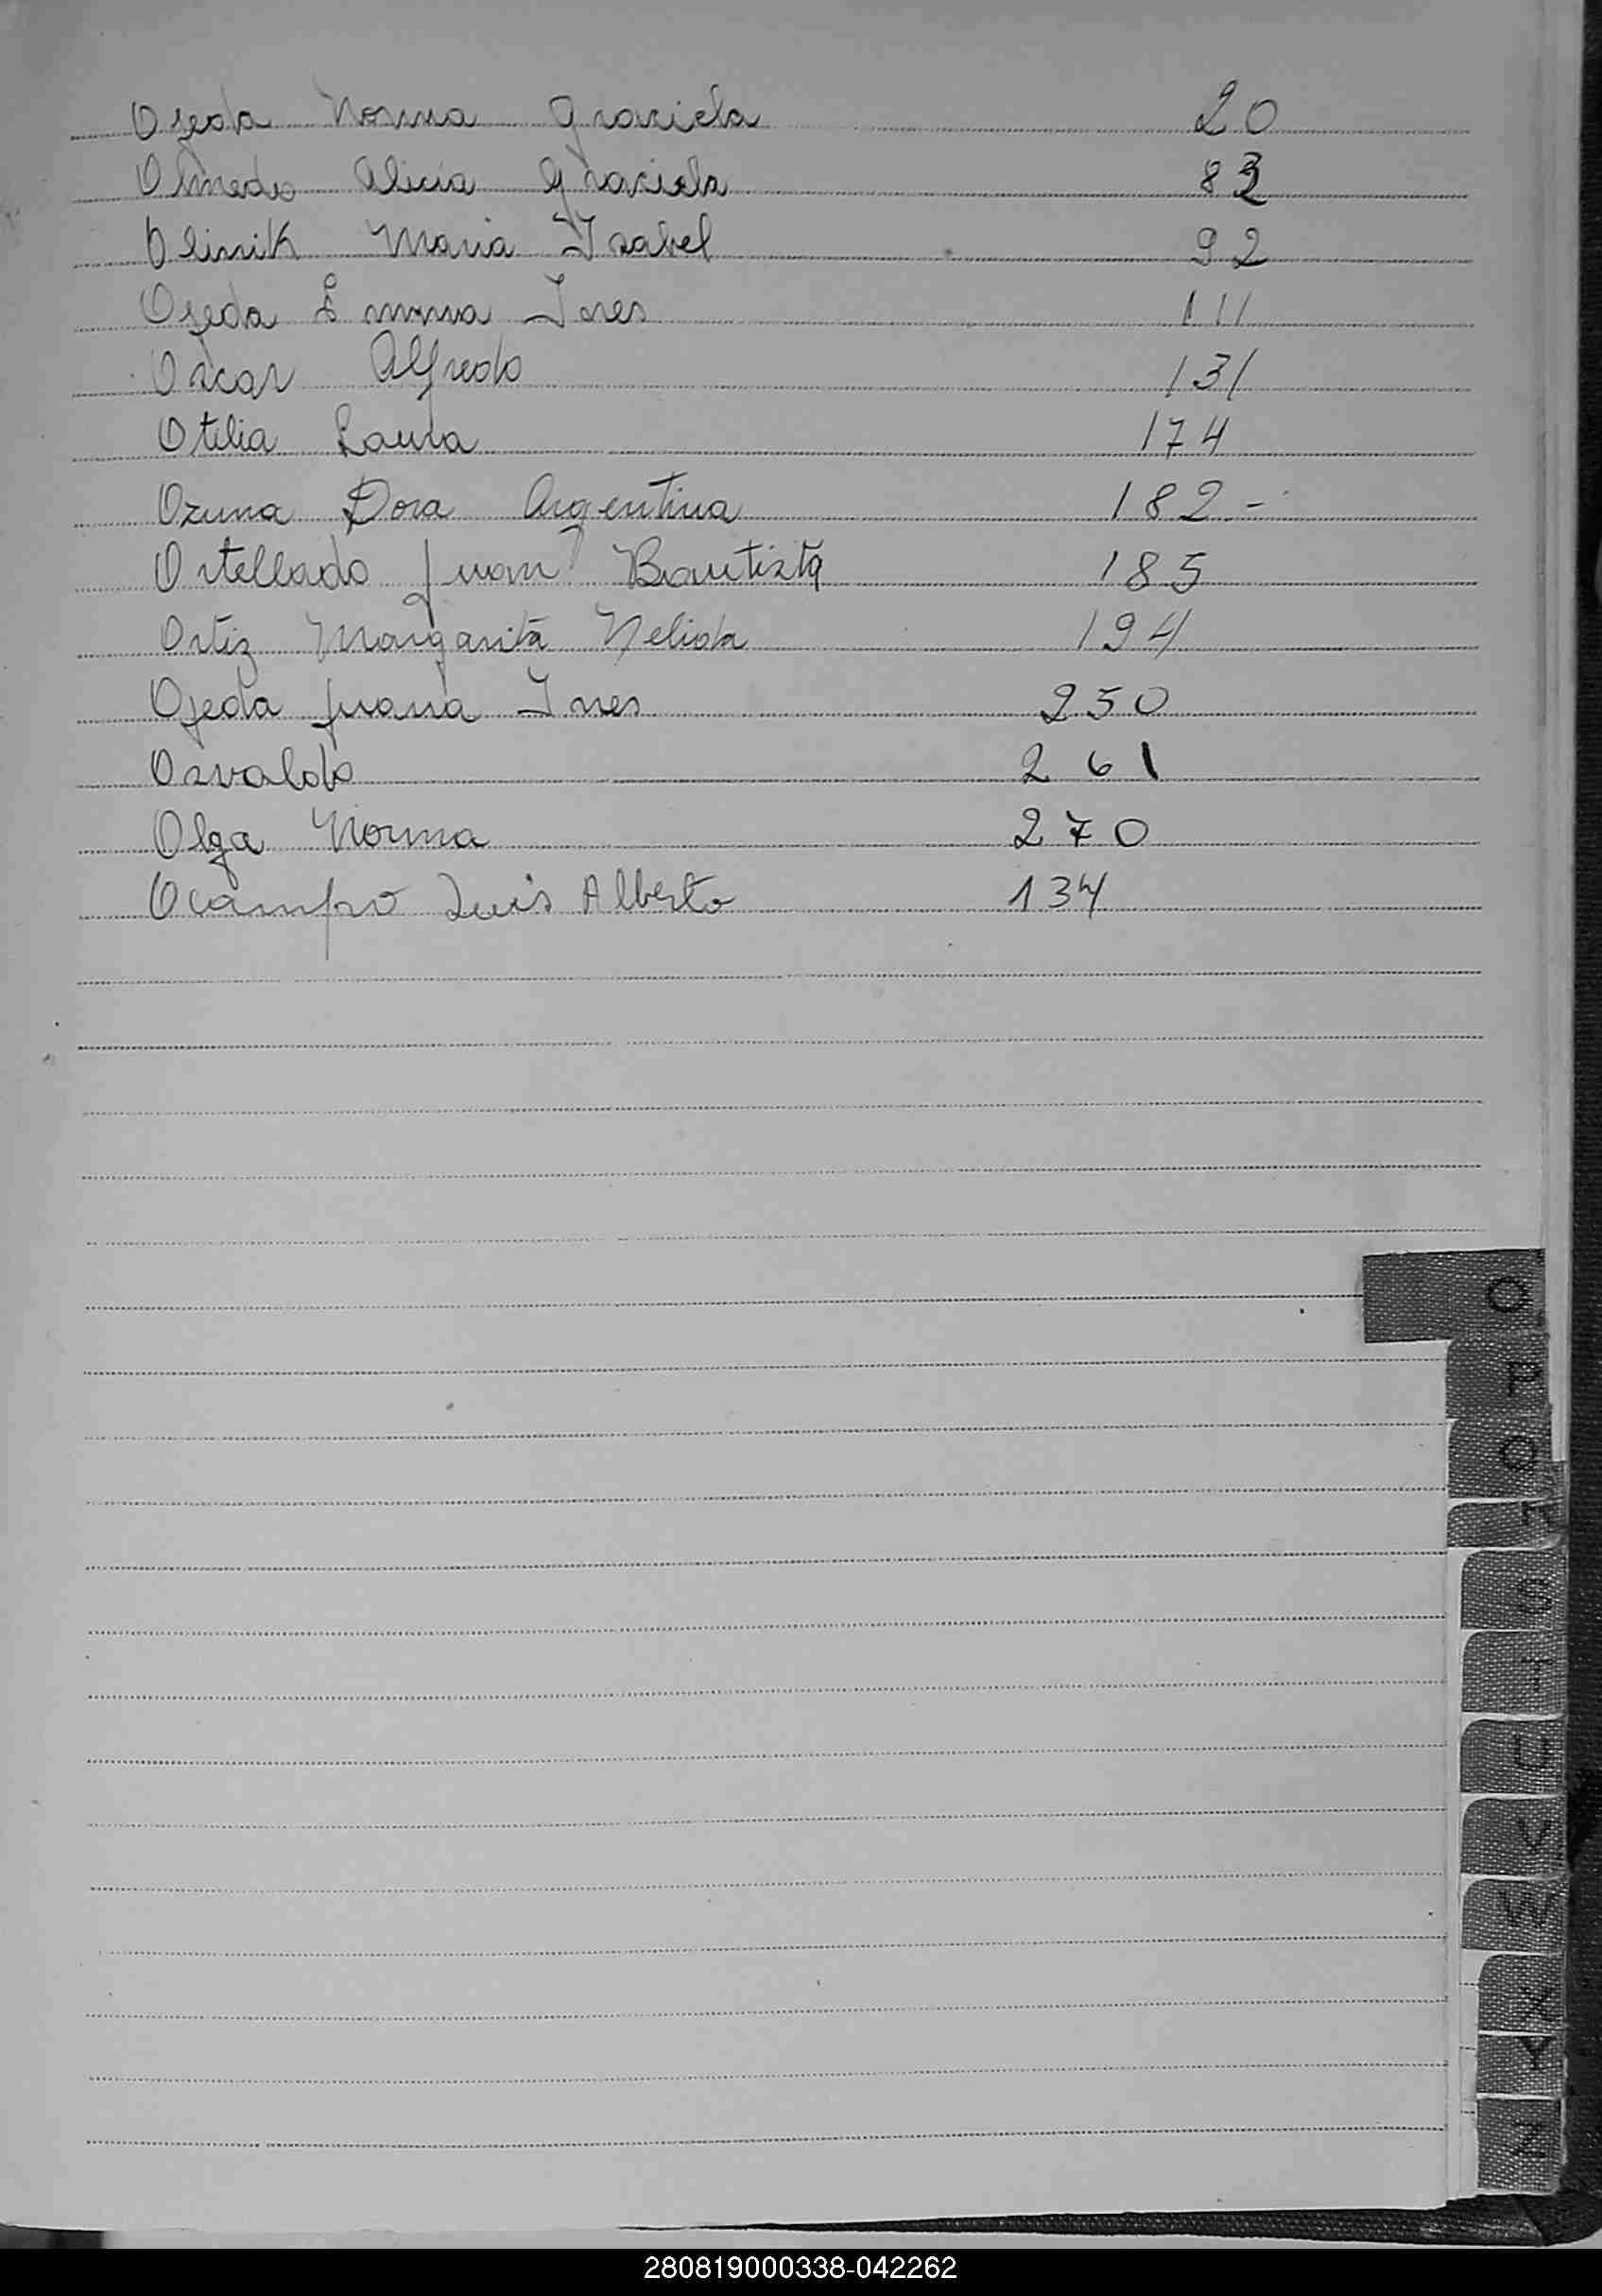 Ojeda Norma Graciela 20
Olmedo Alicia Graciela 83
Olinik Maria Isabel 92
Ojeda Emma Ines 111
Oscar Alfredo 131
Otilia Laura 174
Ozuna Dora Argentina 182 -
Ortellado Juan Bautista 185
Ortiz Margarita Nelida 194
Ojeda Juana Ines 250
Osvaldo 261
Olga Norma 270
Ocampo Luis Alberto 134
O
P
Q
R
S
T
U
V
W
X
Y
Z
280819000338-042262